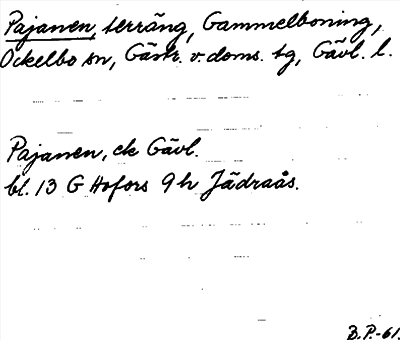 Pajanen, terräng, Gammelboning,
Ockelbo sn, Gästr. v. doms. tg, Gävl. l.
Pajanen, ek Gävl.
bl. 13 G Hofors 9 h Jädraås.
B.P.-61.